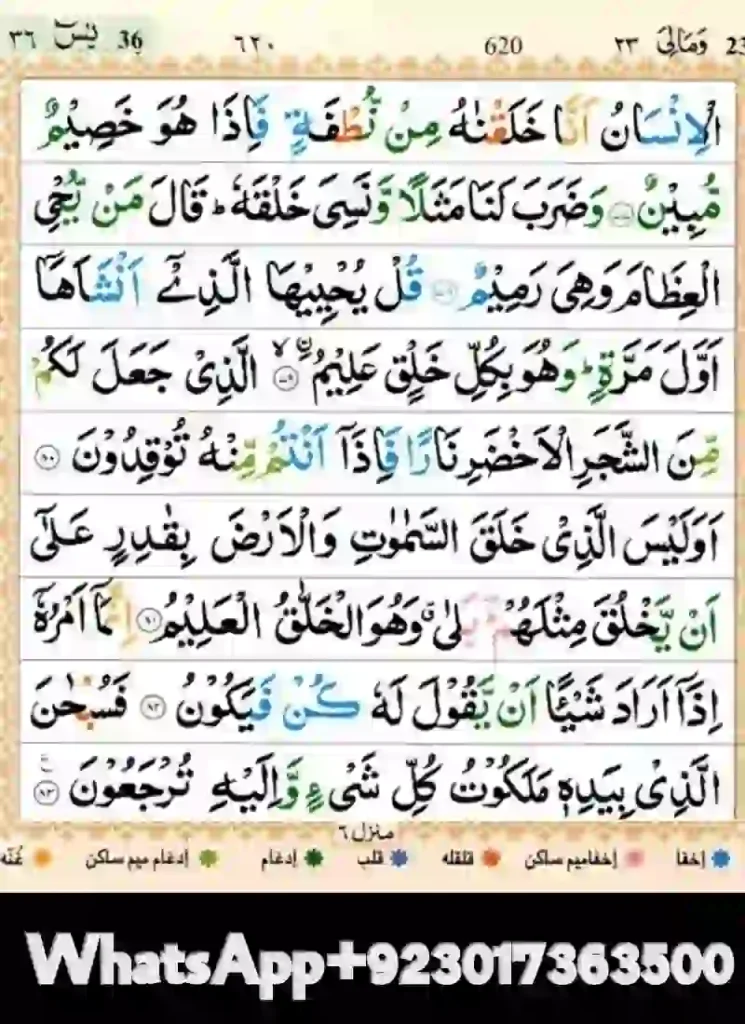 36 يٰسٓ ٣٦ ٦٢٠ 620 وَمَالِىَ ٢٣ 23
الْاِنْسَانُ اَنَّا خَلَقْنٰهُ مِنْ نُّطْفَةٍ فَاِذَا هُوَ خَصِيْمٌ
مُّبِيْنٌ ۝٧٧ وَضَرَبَ لَنَا مَثَلًا وَّنَسِىَ خَلْقَهٗ ؕ قَالَ مَنْ يُّحْىِ
الْعِظَامَ وَهِىَ رَمِيْمٌ ۝٧٨ قُلْ يُحْيِيْهَا الَّذِىْۤ اَنْشَاَهَاۤ
اَوَّلَ مَرَّةٍ ؕ وَهُوَ بِكُلِّ خَلْقٍ عَلِيْمٌ ۝٧٩ۙ الَّذِىْ جَعَلَ لَكُمْ
مِّنَ الشَّجَرِ الْاَخْضَرِ نَارًا فَاِذَاۤ اَنْتُمْ مِّنْهُ تُوْقِدُوْنَ ۝٨٠
اَوَلَيْسَ الَّذِىْ خَلَقَ السَّمٰوٰتِ وَالْاَرْضَ بِقٰدِرٍ عَلٰٓى
اَنْ يَّخْلُقَ مِثْلَهُمْ ؕ بَلٰى ۗ وَهُوَ الْخَلّٰقُ الْعَلِيْمُ ۝٨١ اِنَّمَاۤ اَمْرُهٗۤ
اِذَاۤ اَرَادَ شَيْـًٔا اَنْ يَّقُوْلَ لَهٗ كُنْ فَيَكُوْنُ ۝٨٢ فَسُبْحٰنَ
الَّذِىْ بِيَدِهٖ مَلَكُوْتُ كُلِّ شَىْءٍ وَّاِلَيْهِ تُرْجَعُوْنَ ۝٨٣
منزل ٦
إخفا إخفاميم ساكن قلقله قلب إدغام إدغام ميم ساكن غُنّه
WhatsApp+923017363500